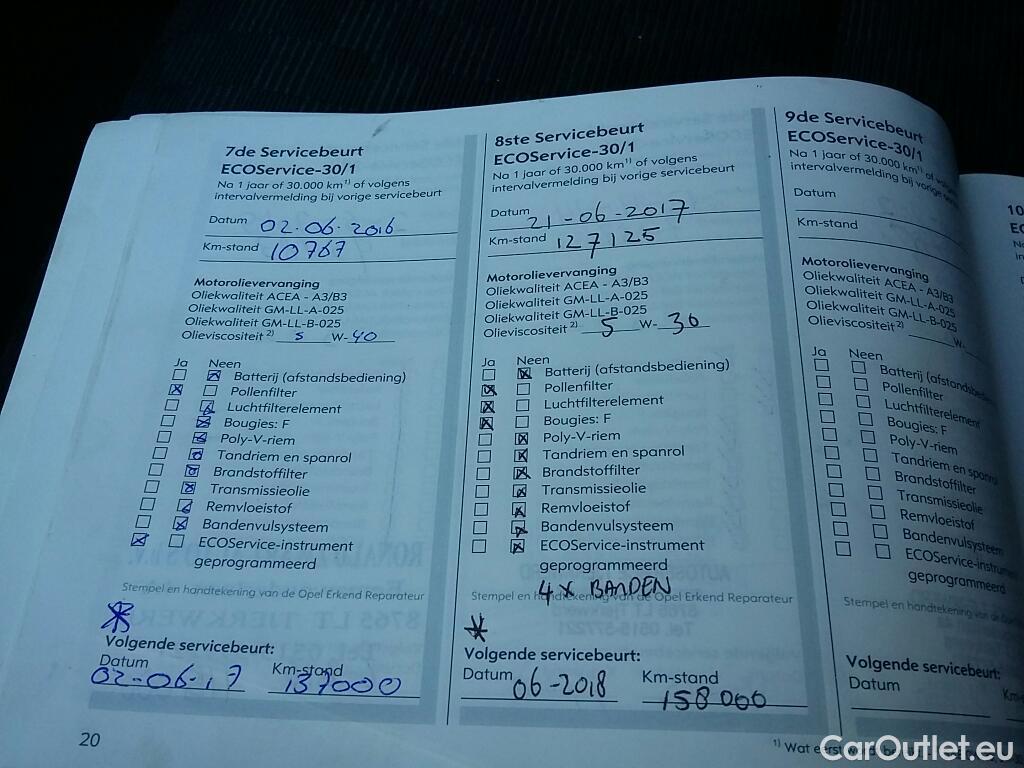 7de Servicebeurt
ECOService-30/1
Na 1 jaar of 30.000 km¹⁾ of volgens
intervalvermelding bij vorige servicebeurt
Datum 02-06-2016
Km-stand 10767
Motorolievervanging
Oliekwaliteit ACEA - A3/B3
Oliekwaliteit GM-LL-A-025
Oliekwaliteit GM-LL-B-025
Olieviscositeit ²⁾ 5 W-40
Ja Neen
Batterij (afstandsbediening)
Pollenfilter
Luchtfilterelement
Bougies: F
Poly-V-riem
Tandriem en spanrol
Brandstoffilter
Transmissieolie
Remvloeistof
Bandenvulsysteem
ECOService-instrument
geprogrammeerd
Stempel en handtekening van de Opel Erkend Reparateur
Volgende servicebeurt:
Datum Km-stand
02-06-17 137000
20
8ste Servicebeurt
ECOService-30/1
Na 1 jaar of 30.000 km¹⁾ of volgens
intervalvermelding bij vorige servicebeurt
Datum 21-06-2017
Km-stand 127125
Motorolievervanging
Oliekwaliteit ACEA - A3/B3
Oliekwaliteit GM-LL-A-025
Oliekwaliteit GM-LL-B-025
Olieviscositeit ²⁾ 5 W-30
Ja Neen
Batterij (afstandsbediening)
Pollenfilter
Luchtfilterelement
Bougies: F
Poly-V-riem
Tandriem en spanrol
Brandstoffilter
Transmissieolie
Remvloeistof
Bandenvulsysteem
ECOService-instrument
geprogrammeerd
4x BANDEN
Stempel en handtekening van de Opel Erkend Reparateur
Volgende servicebeurt:
Datum 06-2018 Km-stand
158000
9de Servicebeurt
ECOService-30/1
Na 1 jaar of 30.000 km¹⁾ of
intervalvermelding bij vorige
Datum
Km-stand
Motorolievervanging
Oliekwaliteit ACEA - A3/B3
Oliekwaliteit GM-LL-A-025
Oliekwaliteit GM-LL-B-025
Olieviscositeit ²⁾ W-
Ja Neen
Batterij
Pollenfilter
Luchtfilterelement
Bougies: F
Poly-V-riem
Tandriem en
Brandstoffilter
Transmissieolie
Remvloeistof
Bandenvulsysteem
geprogrammeerd
Stempel en handtekening van de
Volgende servicebeurt:
Datum
¹⁾ Wat eerst
10
CarOutlet.eu